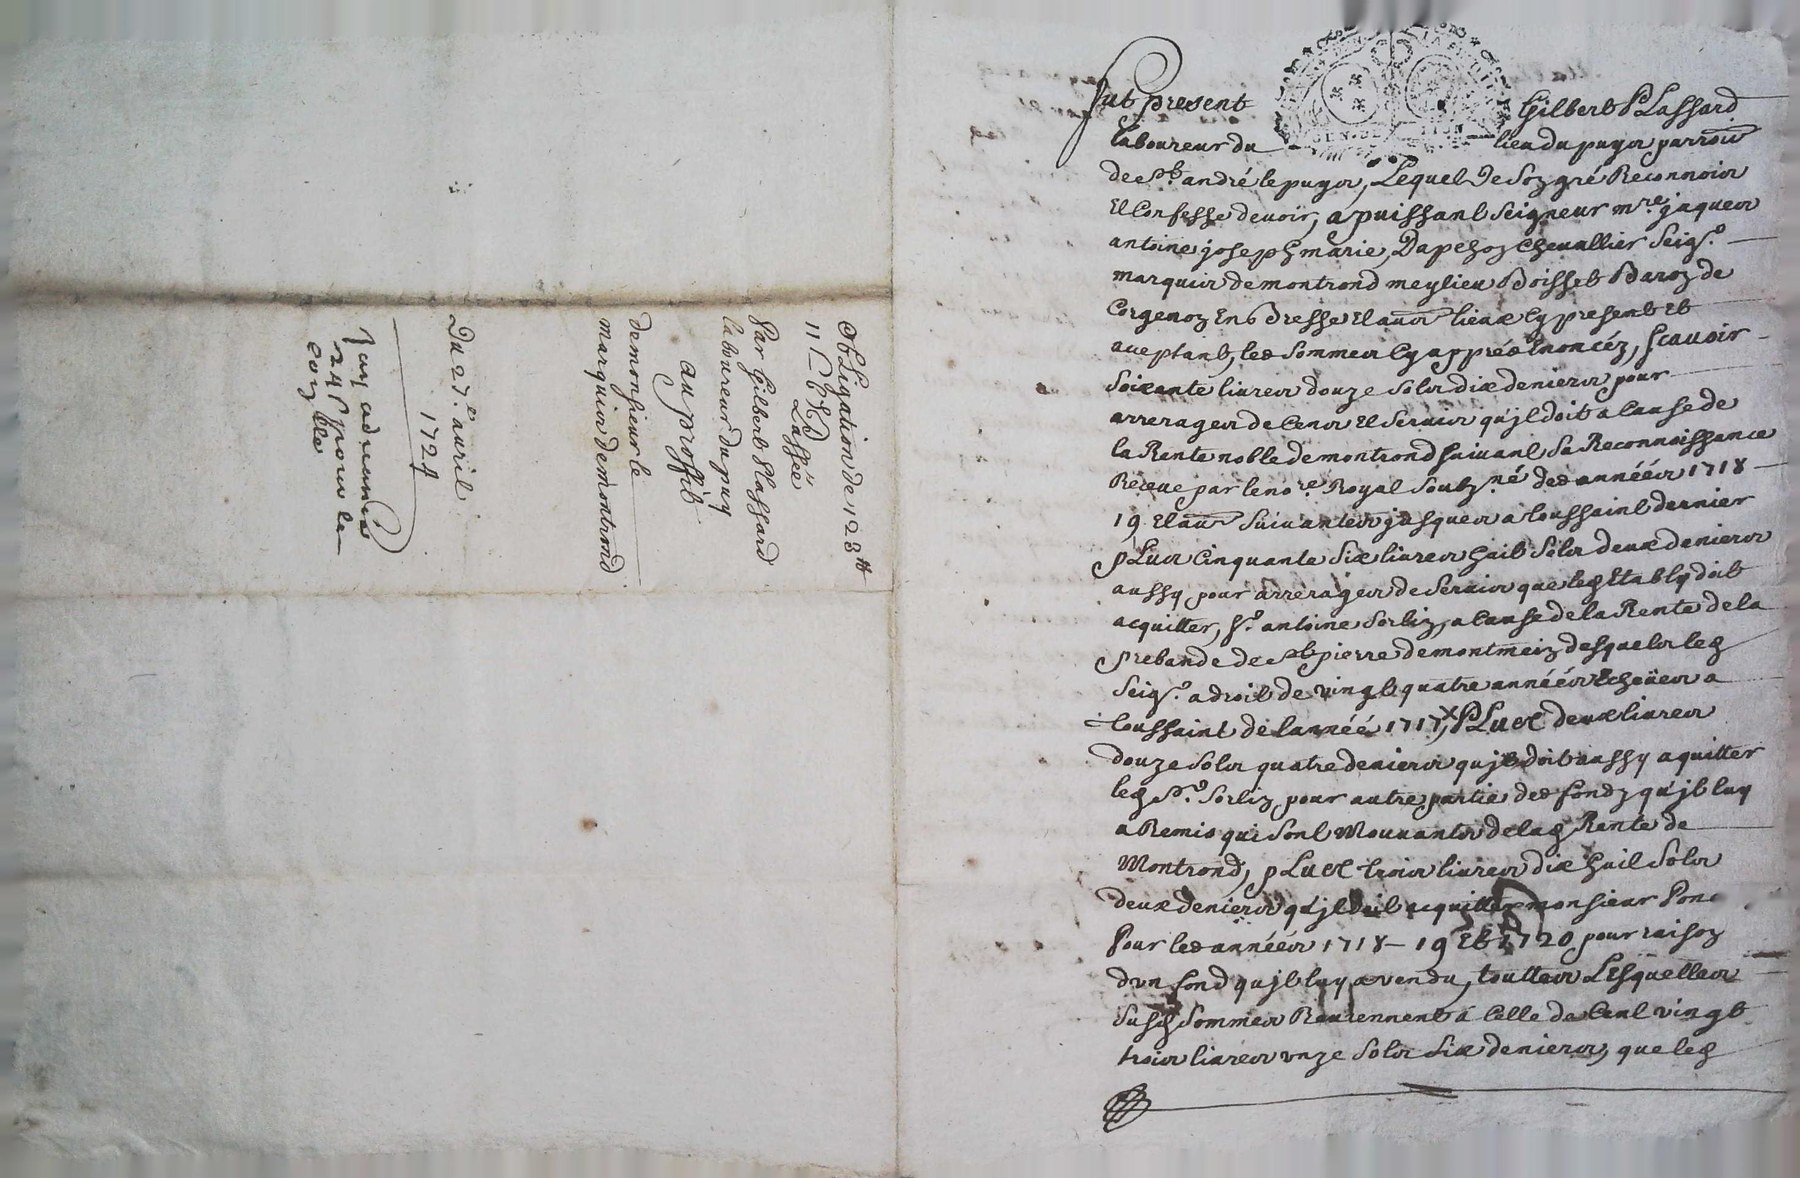 obligation de 123ᵗᵗ
11 s 6 d
Passée
Par Gilbert Plassard
laboureur du puy
au proffit
de monsieur le
marquis de montrond
Du 27.e auril
1724
24 s pour le
fut present Gilbert Plassard
laboureur du lieu du puy parroisse
de st andré le puy, Lequel De son gré Reconnois
Et Confesse devoir, a puissant Seigneur mre jaques
antoine joseph marie, Dapchon Chevallier Seigr
marquis de montrond meylieu Boisset Baron de
Corgenon Enb dresse Et aues lieux Cy present Et
aceptant, les Sommes Cy apprés Enoncéz, scavoir
Soixante livres douze Sols dix deniers pour
arrerages de Cens Et Servis qu'jl doit a Cause de
la Rente noble de montrond suivant Sa Reconnoissance
Receue par le nore Royal Soubzné des années 1718
19 Et aues Suivantes jusques a toussaint dernier
plus Cinquante Six livres huit Sols deux deniers
aussy pour arrerages de Servis que led Etably doit
acquitter, sr antoine Sorlin, a Cause de la Rente de la
prebande de st pierre de montmein desquels led
Seigr a droit de vingt quatre années Echeües a
toussaint de l'année 1717, x Plus deux livres
douze Sols quatre deniers qu'jl doit aussy aquitter
led Sr Sorlin pour autre partie des fondz qu'jl luy
a Remis qui Sont Mouvantes de lad Rente de
Montrond, plus trois livres dix huit Sols
deux deniers qu'jl doit acquitter monsieur Ponc
Pour les années 1718 - 19 Et 1720 pour raison
d'vn fond qu'jl luy a vendu, touttes Lesquelles
Susd Sommes Reuiennent a Celle de Cent vingt
trois livres vnze Sols Six deniers, que led